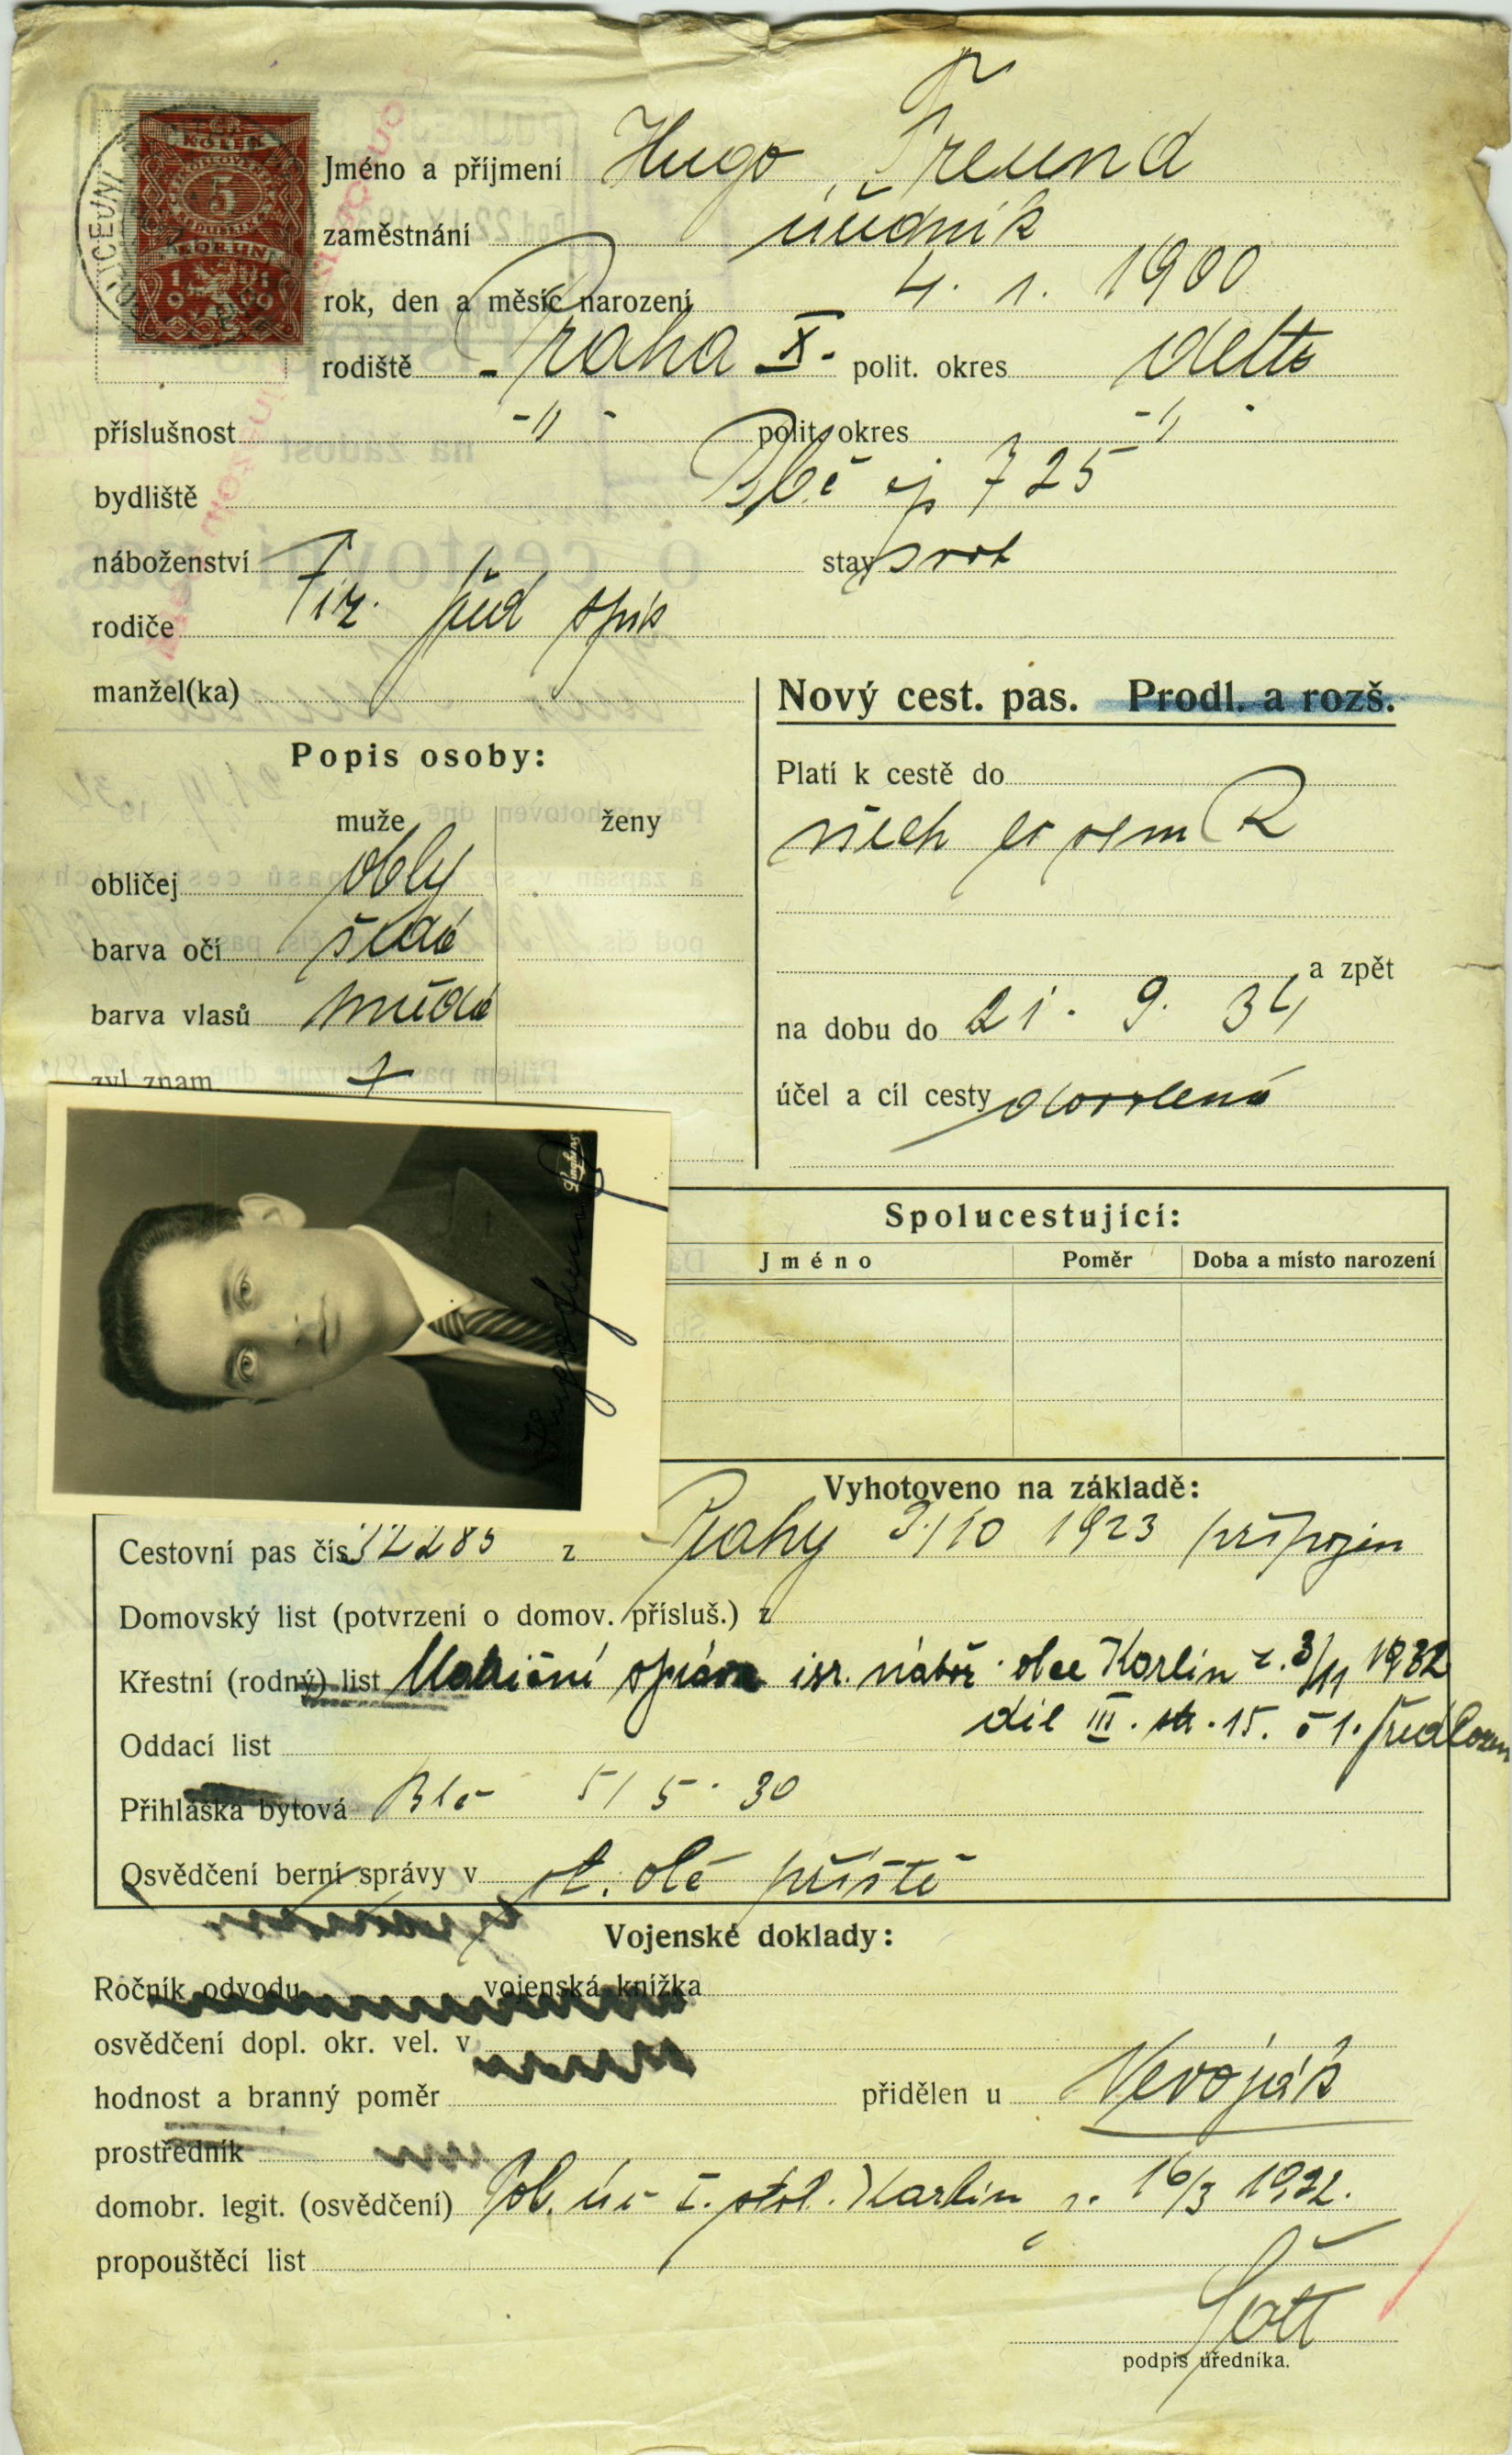 KOLEK
5
KORUN
1919
Jméno a příjmení Hugo Freund
zaměstnání úředník
rok, den a měsíc narození 4. 1. 1900
rodiště Praha X. polit. okres detto
příslušnost -"- polit. okres -"-
bydliště čp 725
náboženství stav svob
rodiče Viz. před spis
manžel(ka)
Nový cest. pas. Prodl. a rozš.
Popis osoby:
muže ženy
obličej oblý
barva očí šedé
barva vlasů hnědé
zvl. znam
Platí k cestě do
všech zem
a zpět
na dobu do 21. 9. 34
účel a cíl cesty dovolená
Hugo Freund
Spolucestující:
Jméno Poměr Doba a místo narození
Vyhotoveno na základě:
Cestovní pas čís. 32285 z Prahy 3/10 1923 připojen
Domovský list (potvrzení o domov. přísluš.) z
Křestní (rodný) list Matriční správa isr. nábož. obce Karlín z. 3/11 1932
díl III. str. 15. č 1. předložen
Oddací list
Přihláška bytová 5/5. 30
Osvědčení berní správy v příště
Vojenské doklady:
Ročník odvodu vojenská knížka
osvědčení dopl. okr. vel. v
hodnost a branný poměr přidělen u Nevoják
prostředník
domobr. legit. (osvědčení) Karlín 16/3 1922.
propouštěcí list
podpis úředníka.